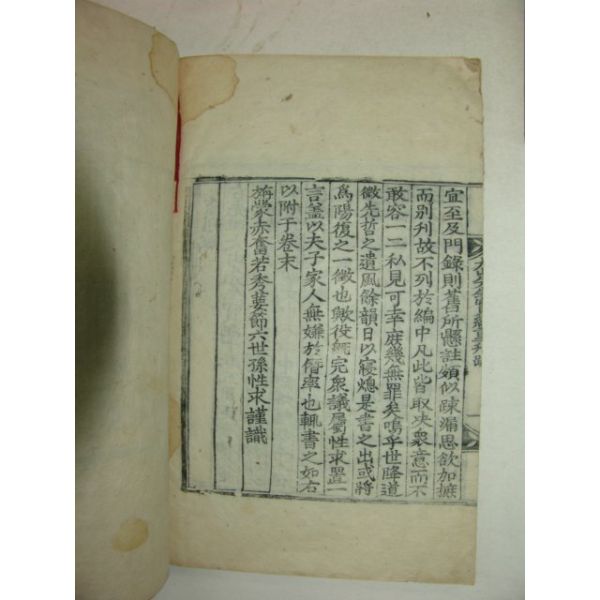 宜至及門錄則舊所懸註頗似疎漏思欲加摭
而別刋故不列於編中凡此皆取决衆意而不
敢容一二私見可幸庶幾無罪矣嗚乎世降道
微先哲之遺風餘韻日以寢熄是書之出或將
爲陽復之一徵也歟役旣完衆議屬性求置一
言盖以夫子家人無嫌於僭率也輒書之如右
以附于卷末
旃蒙赤奮若秀葽節六世孫性求謹識